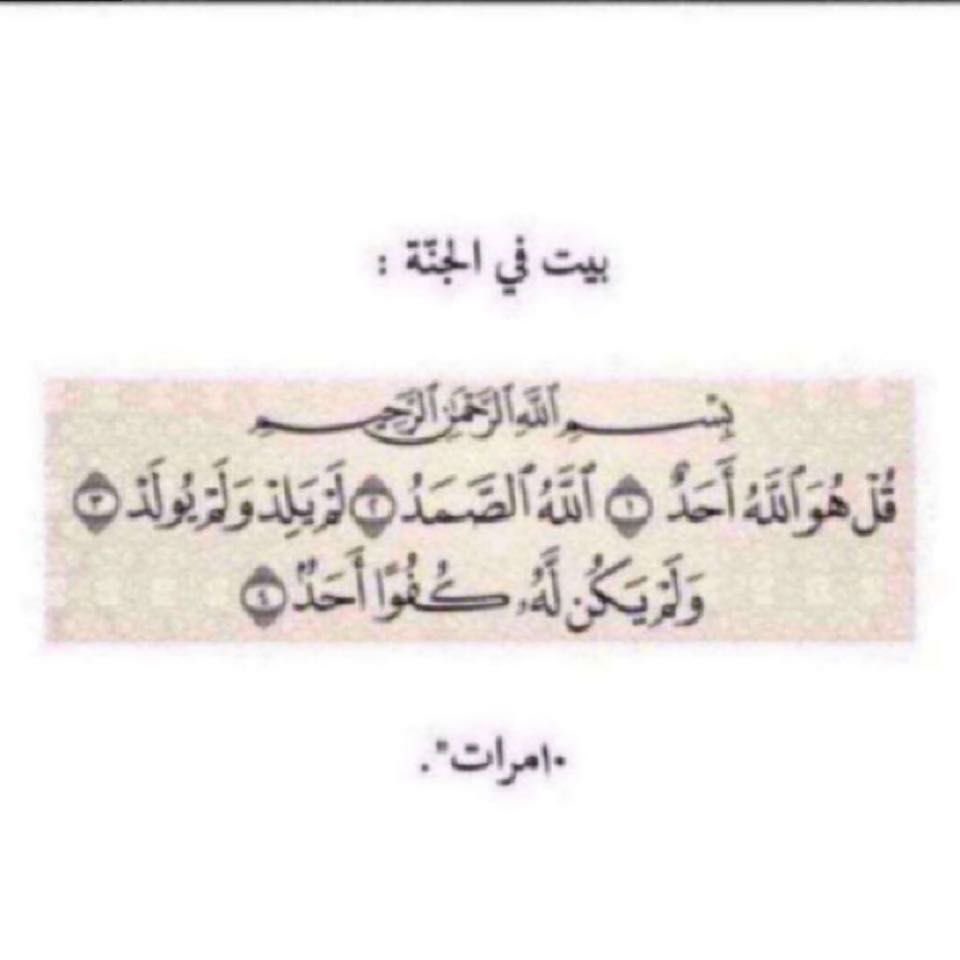 بيت في الجنّة :
بِسْمِ ٱللَّهِ ٱلرَّحْمَٰنِ ٱلرَّحِيمِ
قُلْ هُوَ ٱللَّهُ أَحَدٌ ١ ٱللَّهُ ٱلصَّمَدُ ٢ لَمْ يَلِدْ وَلَمْ يُولَدْ ٣
وَلَمْ يَكُن لَّهُۥ كُفُوًا أَحَدٌۢ ٤
١٠مرات".